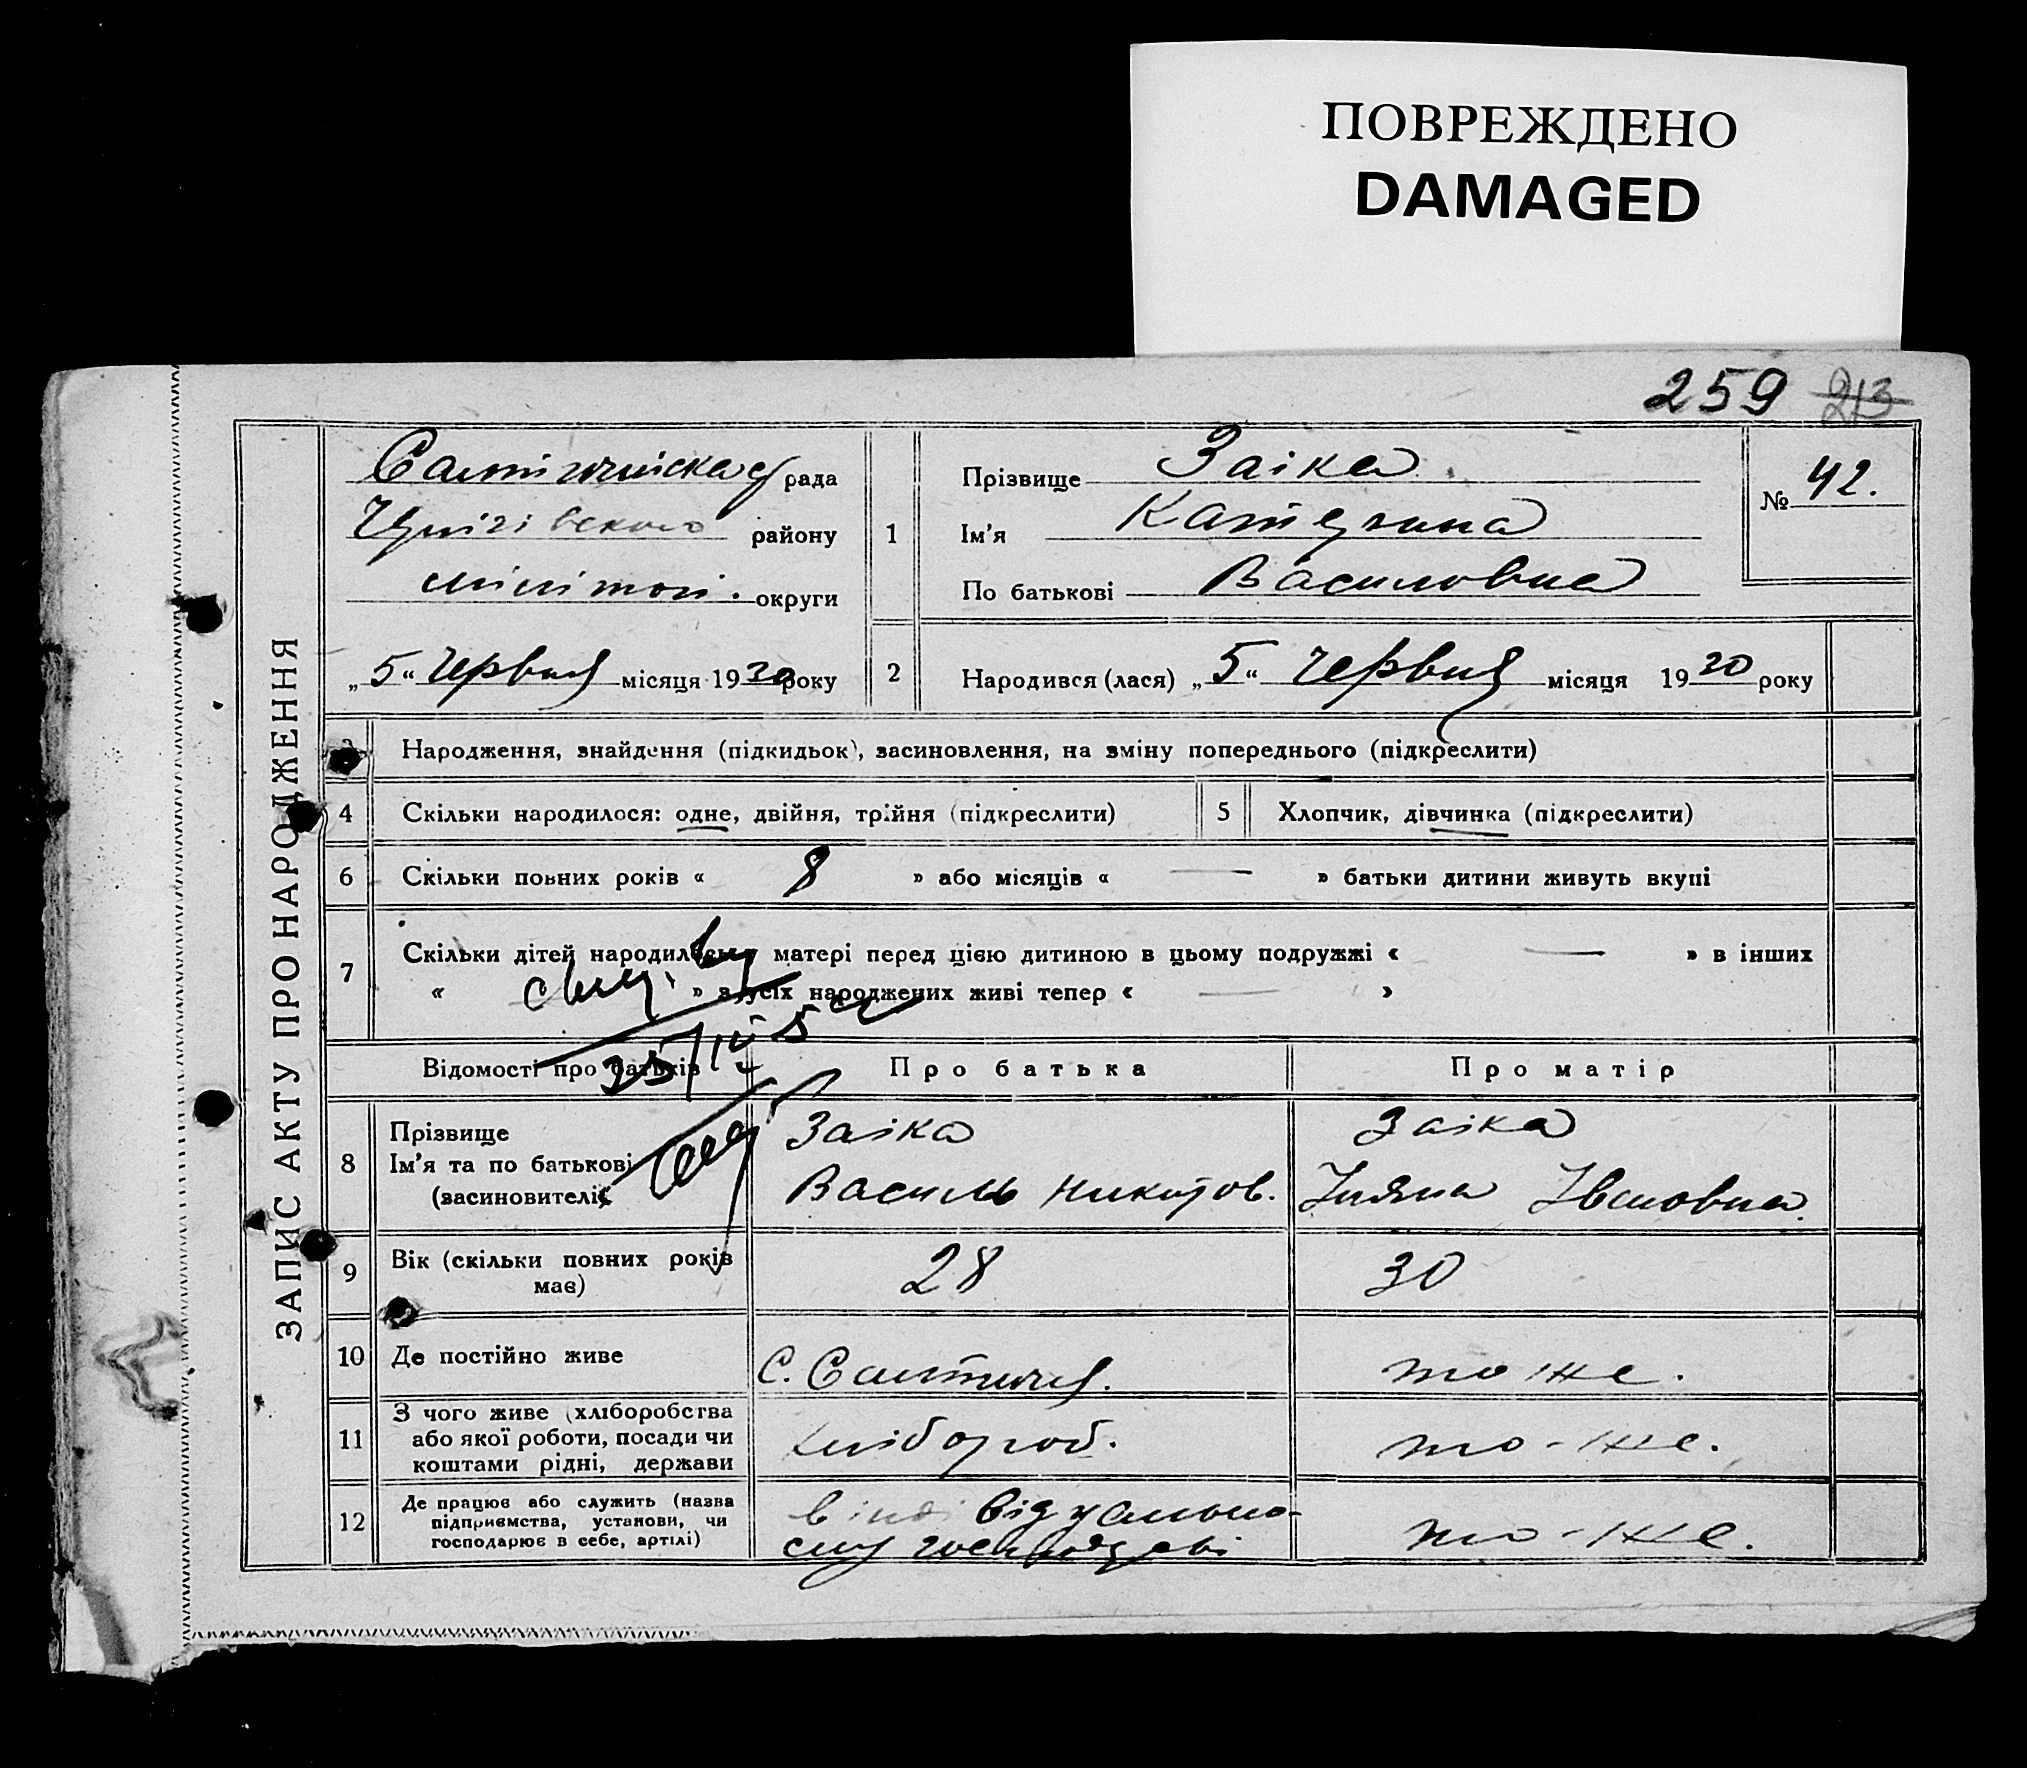 ПОВРЕЖДЕНО
DAMAGED
259 213
ЗАПИС АКТУ ПРО НАРОДЖЕННЯ
рада
району
округи
„5“ червня місяця 1930 року
1
Прізвище Заіка
Ім'я Катерина
По батькові Василовна
№ 42.
2
Народився (лася) „5“ червня місяця 1930 року
3 Народження, знайдення (підкидьок), засиновлення, на зміну попереднього (підкреслити)
4 Скільки народилося: одне, двійня, трійня (підкреслити)
5 Хлопчик, дівчинка (підкреслити)
6 Скільки повних років « 8 » або місяців « — » батьки дитини живуть вкупі
7 Скільки дітей народилось у матері перед цією дитиною в цьому подружжі « — » в інших
« » з усіх народжених живі тепер « — »
Відомості про батьків Про батька Про матір
8 Прізвище Заіка Заіка
Ім'я та по батькові Василь Никитов. Івановна
(засиновителі)
9 Вік (скільки повних років 28 30
має)
10 Де постійно живе с. то же.
11 З чого живе (хліборобства
або якої роботи, посади чи хлібороб. то-же.
коштами рідні, держави
12 Де працює або служить (назва в індівідуально-
підприємства, установи, чи то-же.
господарює в себе, артілі) му господарві